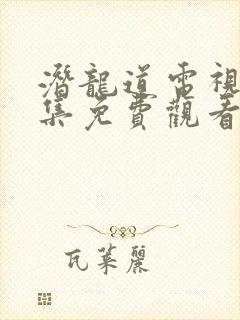 潛龍道電視
集免費觀看
瓦萊麗